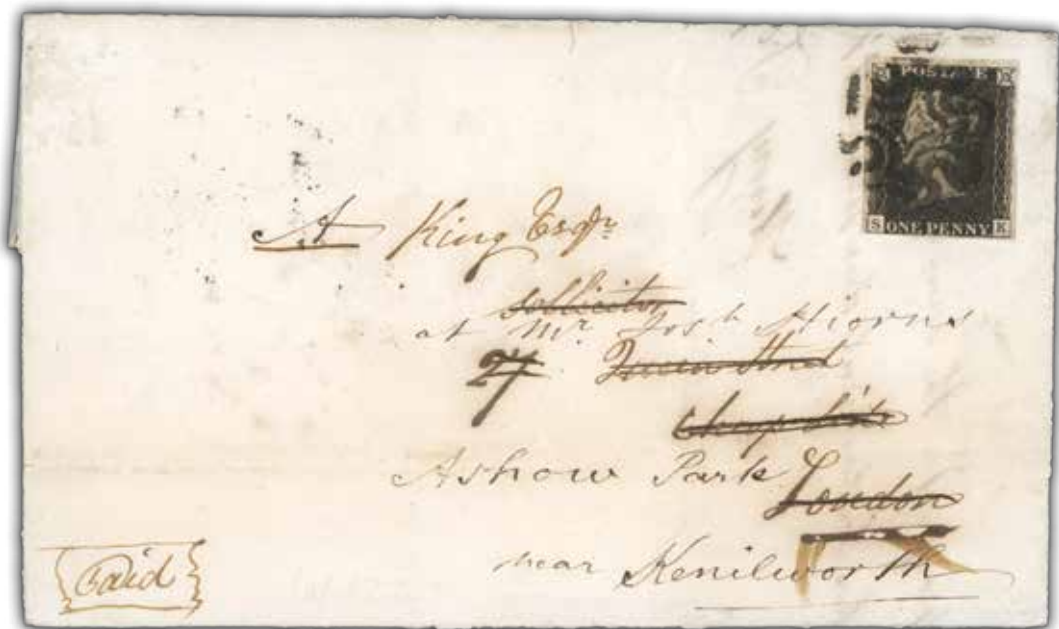 POSTAGE
S K
ONE PENNY
A King Esqr.
sollicitor
at Mr. Josh Hiorns
27
Cheapside
Ashow Park
London
near Kenilworth
Paid